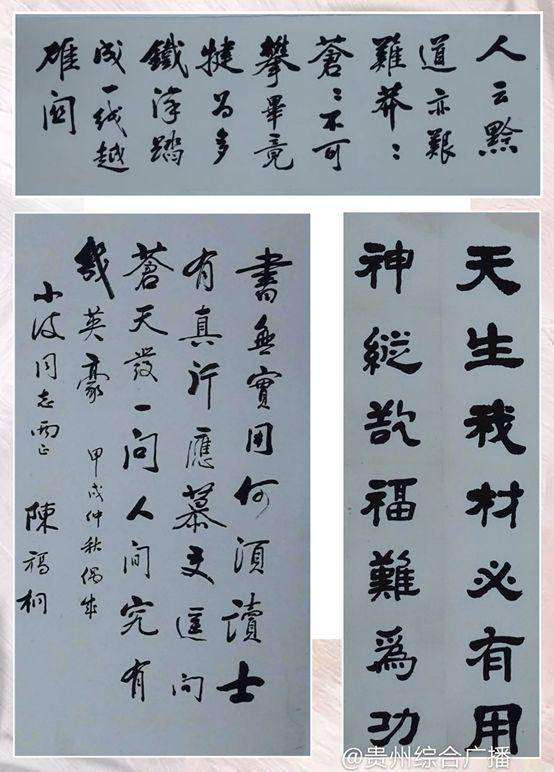 人云黔
道亦艱
難莽〻
蒼〻不可
攀畢竟
犍为多
鐵漢踏
成一线越
雄関
書無實用何須讀士
有真行應慕
蒼天發一问人间究有
幾英豪 甲戌仲秋偶成
小波同志正 陳福桐
天生我材必有用
神縱福難為功
@贵州综合广播